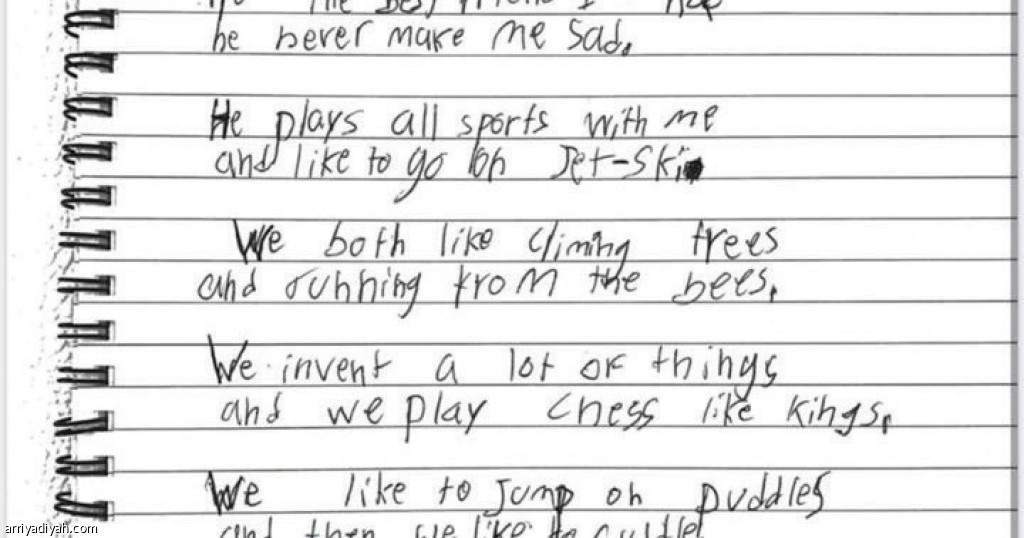 the best friend I
he never make me sad.
He plays all sports with me
and like to go on Jet-Ski
We both like climing trees
and running from the bees.
We invent a lot of things
and we play chess like kings.
We like to jump on puddles
and then we like to cuddle
arriyadiyah.com